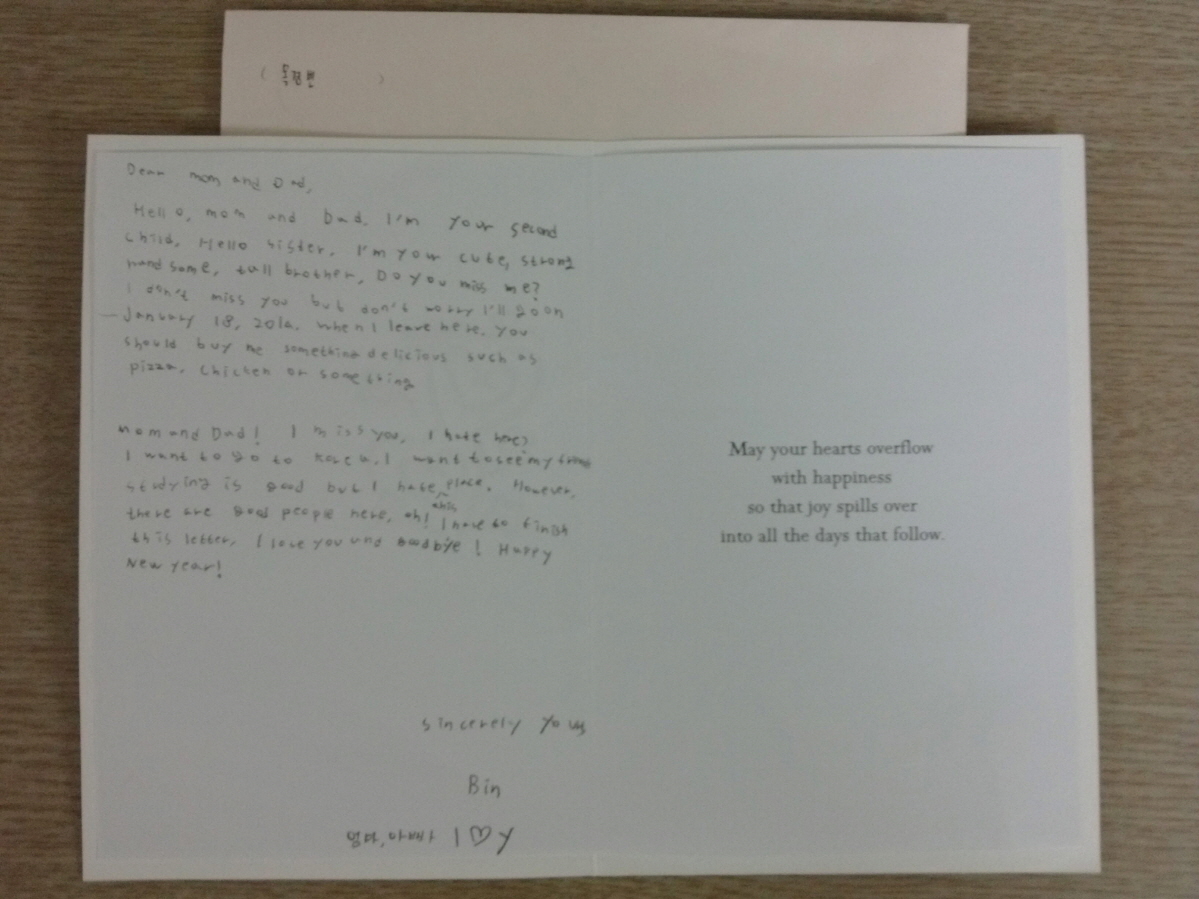 (          )
Dear mom and Dad,
Hello, mom and Dad. I'm your second
child, Hello sister, I'm your cute, strong
handsome, tall brother, Do you miss me?
I don't miss you but don't worry I'll go on
January 18, 2016. When I leave here. You
should buy me something delicious such as
pizza, chicken or something
mom and Dad! I miss you, I hate here?
I want to go to Korea. I want to see my
studying is good but I hate this place. However,
there are good people here, oh! I have to finish
this letter, I love you and goodbye! Happy
New year!
sincerely yours
Bin
엄마, 아빠 I♡Y
May your hearts overflow
with happiness
so that joy spills over
into all the days that follow.